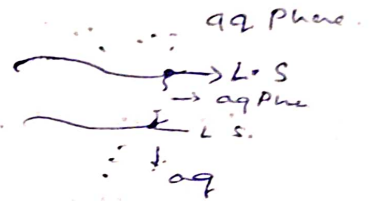 aq Phase.
L. S
aq Phe
L S.
aq